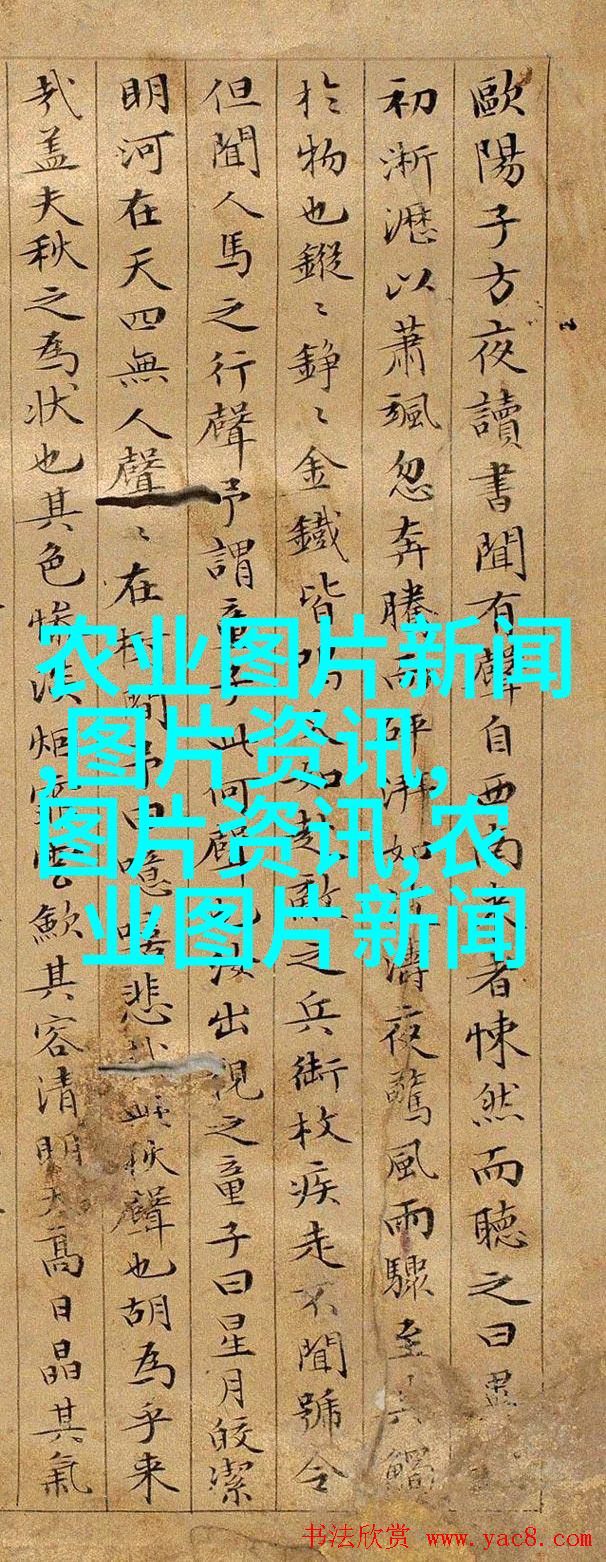 歐陽子方夜讀書聞有聲自西南来者悚然而聽之曰異
初淅瀝以蕭颯忽奔騰而砰湃如濤夜驚風雨驟至其觸
於物也鏦〻錚〻金鐵皆又如赴敵之兵銜枚疾走不聞號令
但聞人馬之行聲予謂童子此何聲也汝出視之童子曰星月皎潔
明河在天四無人聲〻在樹間予曰噫嘻悲哉秋聲也胡為乎来
哉盖夫秋之為狀也其色慘淡烟霏雲歛其容清明天高日晶其氣
农业图片新闻
,图片资讯,
图片资讯,农
业图片新闻
书法欣赏 www.yac8.com